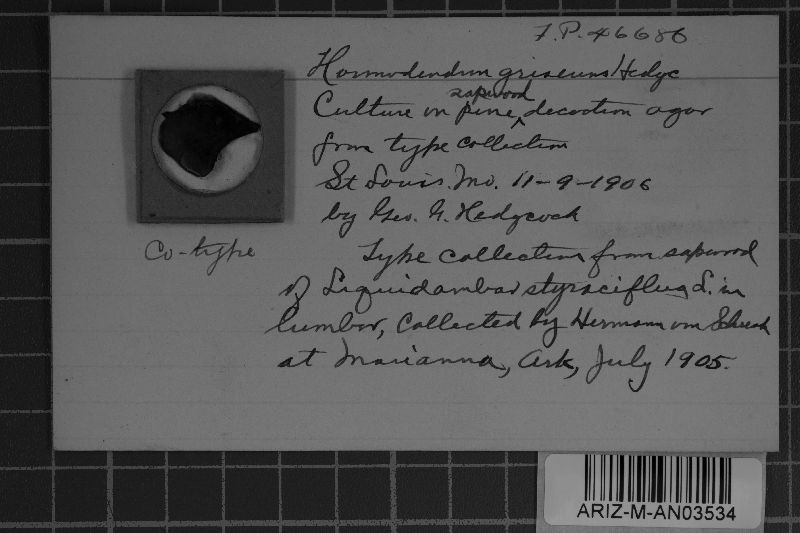 F.P. 46686
Hormodendrum griseum Hedgc
Culture on pine sapwood decoction agar
from type collection
St Louis. Mo. 11-9-1906
by Geo. G. Hedgcock
Co-type
Type collection from sapwood
of Liquidambar styraciflua L. in
lumber, Collected by Hermann von Schrenk
at Marianna, Ark, July 1905.
ARIZ-M-AN03534